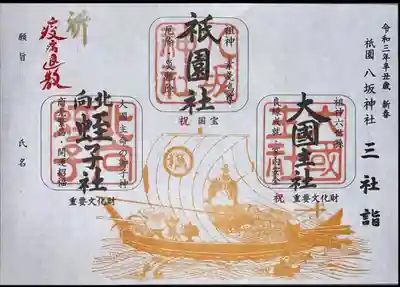 令和三年辛丑歳 新春
祇園 八坂神社 三社詣
祖神六世孫
大國主社
良縁成就・家内安全
重要文化財
祝
祖神 素戔嗚尊
祇園社
厄除・災難除
国宝
祝
大国主命の御子神
北向蛭子社
商売繁盛・開運招福
重要文化財
祈
疫病退散
願旨
氏名